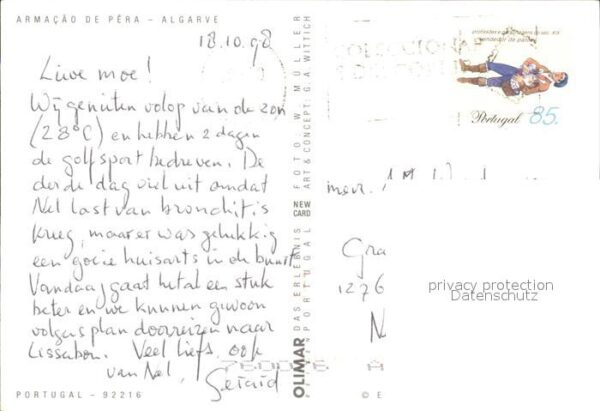 ARMAÇÃO DE PÊRA - ALGARVE
18.10.98
Lieve moe!
Wij genieten volop van de zon
(28°C) en hebben 2 dagen
de golfsport bedreven. De
derde dag viel uit omdat
Nel last van bronchitis
kreeg, maar er was gelukkig
een goeie huisarts in de buurt.
Vandaag gaat het al een stuk
beter en we kunnen gewoon
volgens plan doorreizen naar
Lissabon. Veel liefs, ook
van Nel, Gerard
PORTUGAL - 92216
OLIMAR DAS ERLEBNIS
PORTUGAL
NEW CARD
FOTO W. MÜLLER
ART & CONCEPT: G.A. WITTICH
vendedor de
Portugal 85.
mevr.
Gra
1276
N
privacy protection
Datenschutz
© E